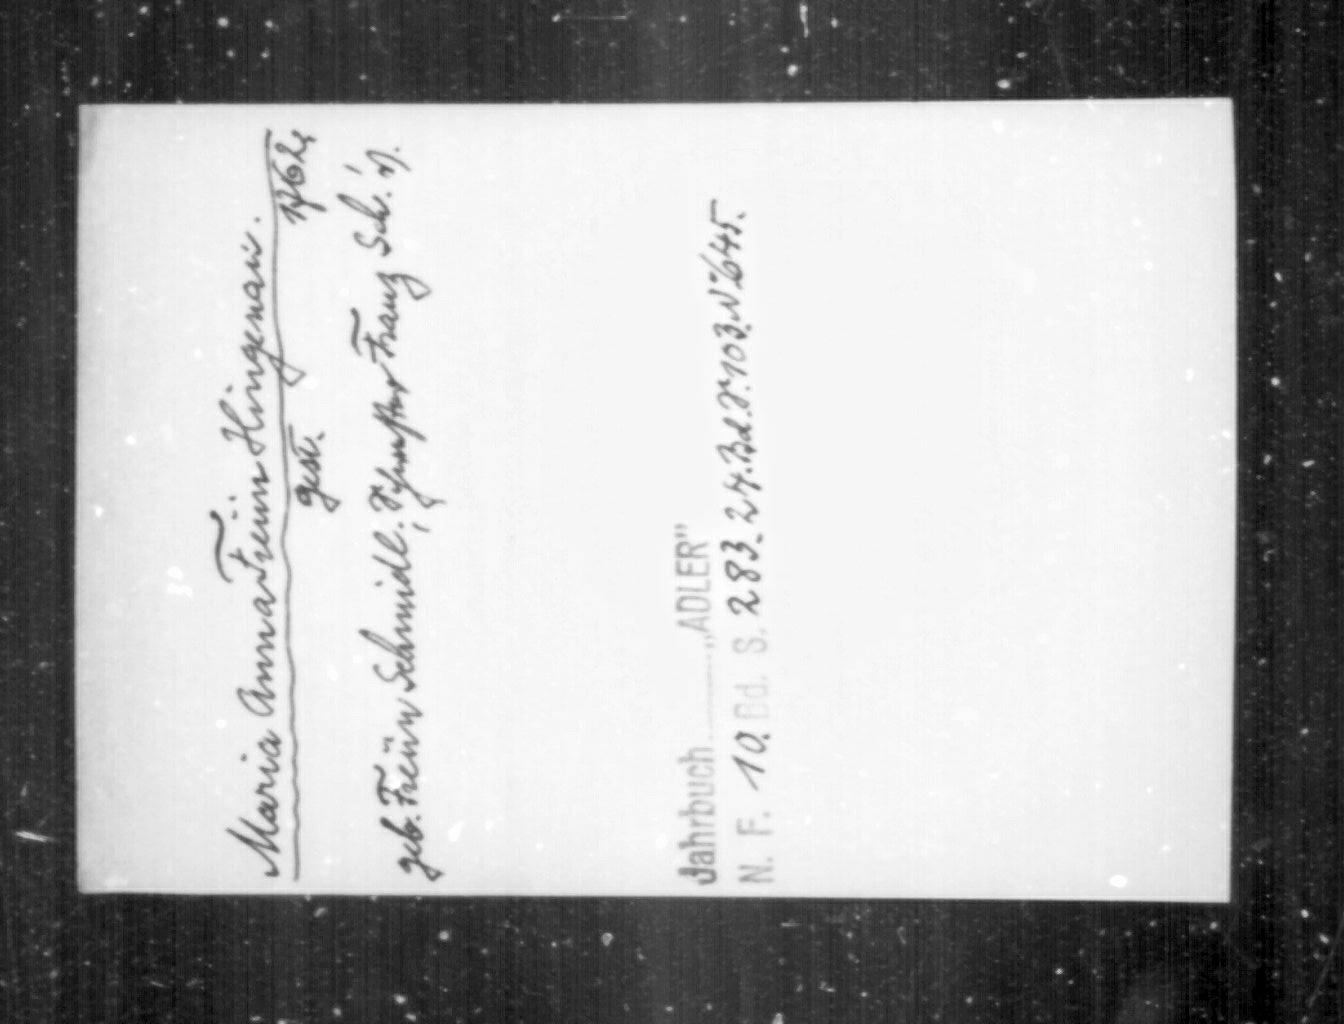 Maria Anna Freiin Hingenau.
gest. 1762
geb. Freiin Schmidl. Franz Sch.
Jahrbuch „ADLER”
N. F. 10. Bd. S. 283. 24. Bd. S. 103. No 645.